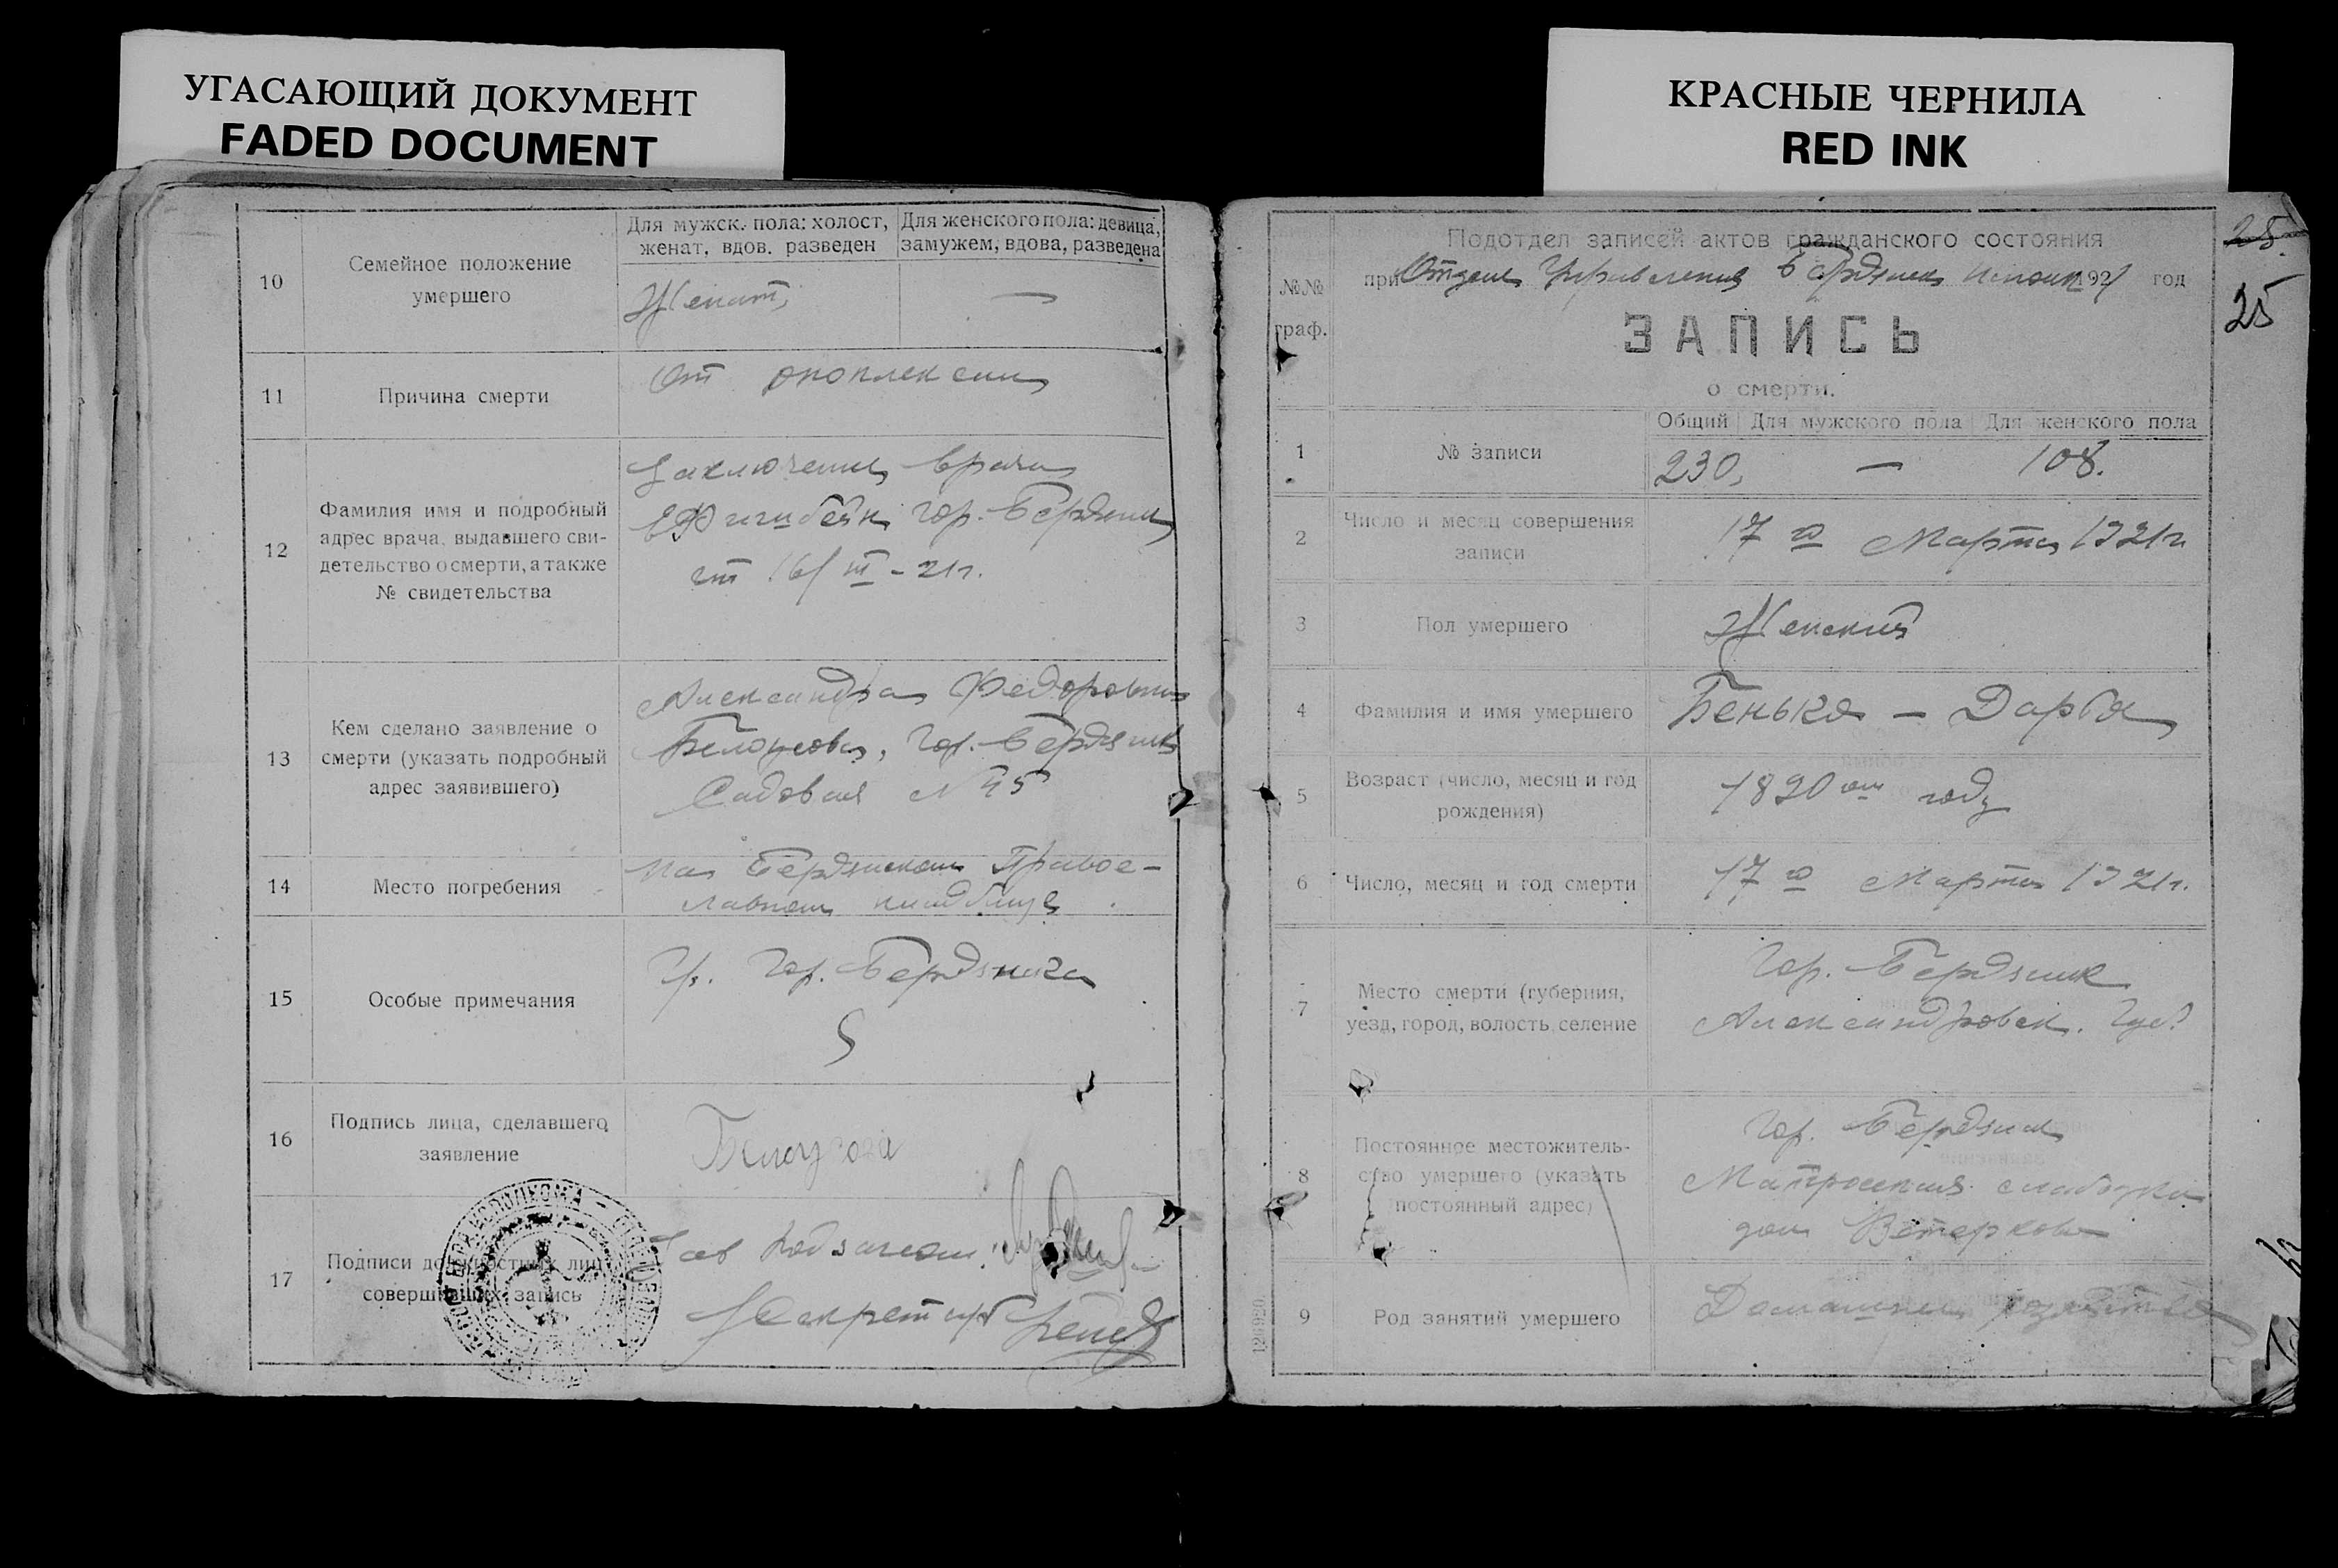 УГАСАЮЩИЙ ДОКУМЕНТ
FADED DOCUMENT
КРАСНЫЕ ЧЕРНИЛА
RED INK
10
Семейное положение
умершего
Для мужск. пола: холост,
женат, вдов. разведен
Для женского пола: девица,
замужем, вдова, разведена
Женат,
—
11
Причина смерти
От опоплексии
12
Фамилия имя и подробный
адрес врача, выдавшего сви-
детельство о смерти, а также
№ свидетельства
Заключение врача
гор. Бердянск
от 16/III-21г.
13
Кем сделано заявление о
смерти (указать подробный
адрес заявившего)
Александра Федоровна
Белоусова, гор. Бердянск
Садовая № 45
14
Место погребения
на Бердянском Правос-
лавном кладбище.
15
Особые примечания
Гр. гор. Бердянска
16
Подпись лица, сделавшего
заявление
Белоусова
17
Подписи должностных лиц
совершивших запись
Зав
Секретарь
25
25
№№
граф.
Подотдел записей актов гражданского состояния
при Отделе Управления Бердянск 1921 год
ЗАПИСЬ
о смерти.
1
№ записи
Общий
Для мужского пола
Для женского пола
230,
—
108.
2
Число и месяц совершения
записи
17го Марта 1921г
3
Пол умершего
Женский
4
Фамилия и имя умершего
Бенько – Дарья
5
Возраст (число, месяц и год
рождения)
году
6
Число, месяц и год смерти
17го Марта 1921г.
7
Место смерти (губерния,
уезд, город, волость, селение
Гор. Бердянск
Александровск. Губ.
8
Постоянное местожитель-
ство умершего (указать
постоянный адрес)
Гор. Бердянск
Матросская слободка
дом Ветеркова
9
Род занятий умершего
Домашнее хозяйство